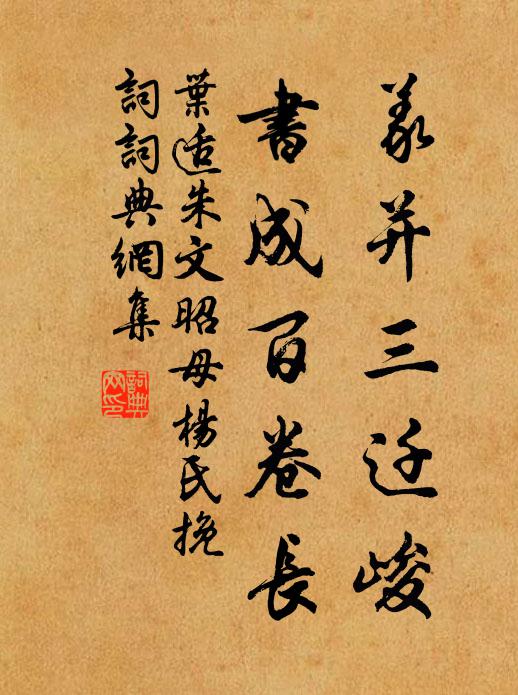 義并三迁峻
書成百卷長
葉适朱文昭母楊氏挽
詞詞典網集
詞典
网印